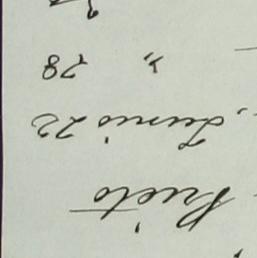 Prieto
Junio 22
" 28